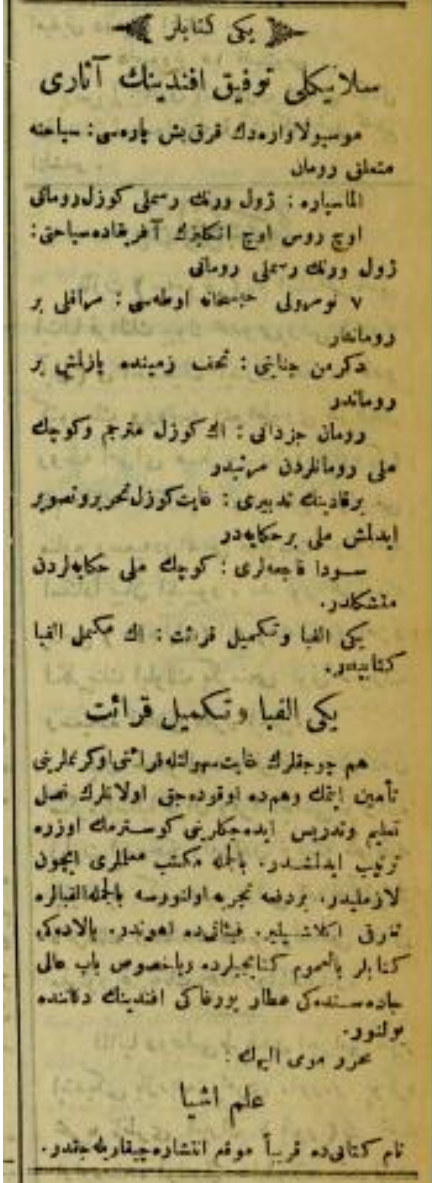 یکی کتابلر
سلانیکلی توفیق افندینك آثاری
موسیو لاوارهدك قرق بش پارهسی : سیاحته
متعلق رومان
الماسپاره : ژول ورنك رسملی کوزل رومانی
اوچ روس اوچ انکلیزك آفریقاده سیاحتی :
ژول ورنك رسملی رومانی
۷ نومرولی حبسخانه اوطهسی : مراقلی بر
روماندر
دکرمن جنایتی : تحف زمینده یازلمش بر
روماندر
رومان جزدانی : اك کوزل مترجم وکوچك
ملی رومانلردن مرتبدر
برقادینك تدبیری : غایت کوزل تحریر و تصویر
ایدلمش ملی برحکایهدر
سودا فاجعهلری : کوچك ملی حکایهلردن
متشکلدر.
یکی الفبا وتکمیل قرائت : اك مکمل الفبا
کتابیدر.
یکی الفبا وتکمیل قرائت
هم چوجقلرك غایت سهولتله قرائتی اوکرنملرینی
تأمین ایتمك وهمده اوقودهجق اولانلرك نصل
تعلیم وتدریس ایدهجکلرینی کوسترمك اوزره
ترتیب ایدلمشدر. بالجمله مکتب معلملری ایچون
لازملیدر. بردفعه تجربه اولنورسه بالجمله الفبالره
تفوقی اکلاشیلیر. فیئاتیده اهوندر. بالادهکی
کتابلر بالعموم کتابجیلرده وباخصوص باب عالی
جادهسندهکی عطار یورغاکی افندینك دکاننده
بولنور.
محرر موی الیهك :
علم اشیا
نام کتابیده قریباً موقع انتشاره چیقاریلهجقدر.